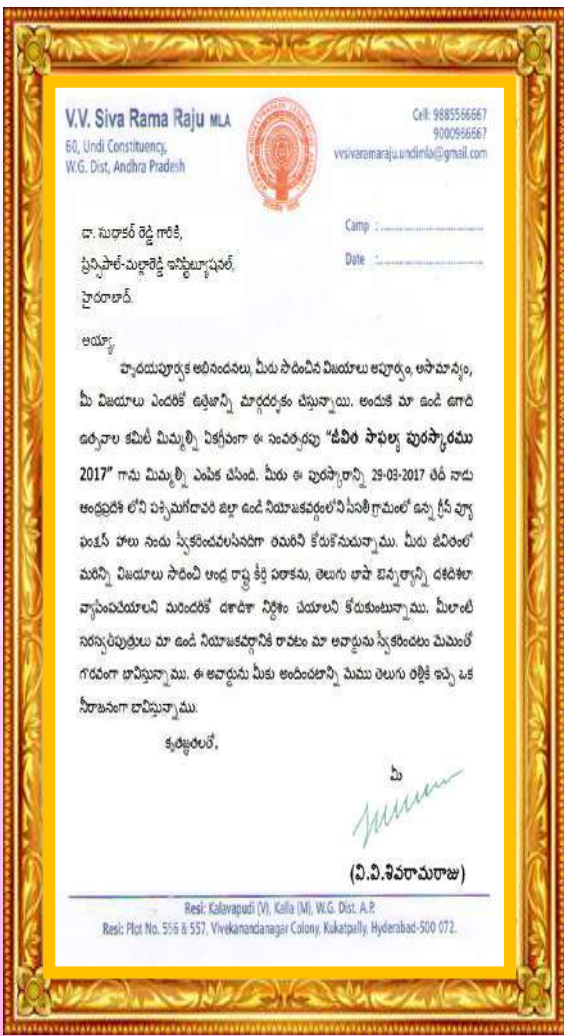 V.V. Siva Rama Raju MLA
60, Undi Constituency,
W.G. Dist, Andhra Pradesh
Cell: 9885566667
9000966667
vvsivaramaraju.undimla@gmail.com
Camp :
Date :
డా. సుధాకర్ రెడ్డి గారికి,
ప్రిన్సిపాల్-మల్లారెడ్డి ఇనిస్టిట్యూషనల్,
హైదరాబాద్.
అయ్యా,
హృదయపూర్వక అభినందనలు, మీరు సాదించిన విజయాలు అపూర్వం, అసామాన్యం,
మీ విజయాలు ఎందరికో ఉత్తేజాన్ని మార్గదర్శకం చేస్తున్నాయి. అందుకే మా ఉండి ఉగాది
ఉత్సవాల కమిటీ మిమ్మల్ని ఏకగ్రీవంగా ఈ సంవత్సరపు "జీవిత సాఫల్య పురస్కారము
2017" గాను మిమ్మల్ని ఎంపిక చేసింది. మీరు ఈ పురస్కారాన్ని 29-03-2017 తేదీ నాడు
ఆంధ్రప్రదేశ్ లోని పశ్చిమగోదావరి జిల్లా ఉండి నియోజకవర్గంలోని సీసలి గ్రామంలో ఉన్న గ్రీన్ వ్యూ
ఫంక్షన్ హాలు నందు స్వీకరించవలసినదిగా తమరిని కోరుకొనుచున్నాము. మీరు జీవితంలో
మరిన్ని విజయాలు సాదించి ఆంధ్ర రాష్ట్ర కీర్తి పతాకను, తెలుగు బాషా ఔన్నత్యాన్ని దశదిశలా
వ్యాపింపచేయాలని మరిందరికో దశాదిశా నిర్దేశం చేయాలని కోరుకుంటున్నాము. మీలాంటి
సరస్వతిపుత్రులు మా ఉండి నియోజకవర్గానికి రావటం మా అవార్డును స్వీకరించటం మేమెంతో
గౌరవంగా బావిస్తున్నాము. ఈ అవార్డును మీకు అందించటాన్ని మేము తెలుగు తల్లికి ఇచ్చే ఒక
నీరాజనంగా బావిస్తున్నాము.
కృతజ్ఞతలతో,
మీ
(వి.వి.శివరామరాజు)
Resi: Kalavapudi (V), Kalla (M), W.G. Dist. A.P.
Resi: Plot No. 556 & 557, Vivekanandanagar Colony, Kukatpally, Hyderabad-500 072.